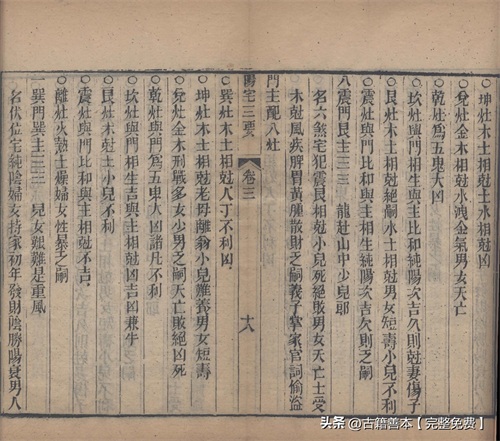 ○坤灶木土相尅土水相尅凶
○兌灶金木相尅水洩金氣男女夭亡
○乾灶爲五鬼大凶
○坎灶與門相生與主比和純陽次吉久則尅妻傷子
○艮灶木尅土相尅絕嗣水土相尅男女短壽小兒不利
○震灶與門比和與主相生純陽次吉久則乏嗣
八震門艮主☳☶ 龍赴山中少兒郎
名六煞宅犯震艮相尅小兒死絕敗男女夭亡土受
木尅風疾脾胃黃腫散財乏嗣義子掌家官詞偷溢
門主配八灶
陽宅三要 卷三 十八
○巽灶木土相尅人丁不利凶
○坤灶木土相尅老母離翁小兒難養男女短壽
○兌灶金木刑戰多女少男乏嗣夭亡敗絕凶死
○乾灶與門爲五鬼大凶諸凡不利
○坎灶與門相生吉與主相尅凶吉凶兼半
○艮灶木尅土小兒不利
○震灶與門比和與主相尅不吉
○離灶火熱土燥婦女性暴乏嗣
一巽門巽主☴☴ 兒女艱難是重風
名伏位宅純陰婦女持家初年發財陰勝陽衰男人
头条 @古籍善本【完整免费】